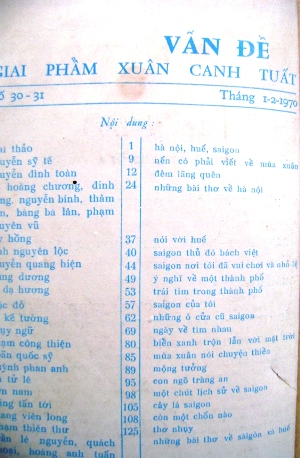 VẤN ĐỀ
GIAI PHẨM XUÂN CANH TUẤT
SỐ 30-31 Tháng 1-2-1970
Nội dung :
thảo 1 hà nội, huế, saigon
nguyễn sỹ tế 9 nến có phải viết về mùa xuân
nguyễn đình toàn 12 đêm lãng quên
hoàng chương, đinh 24 những bài thơ về hà nội
nguyễn bính, thâm
bàng bá lân, phạm
nguyễn vũ
hồng 37 nói với huế
nguyên lộc 40 saigon thủ đô bách việt
nguyễn quang hiện 44 saigon nơi tôi đã vui chơi và
dương 49 ý nghĩ về một thành phố
dạ hương 53 trái tim trong thành phố
đỗ 57 saigon của tôi
kế tường 62 những ô cửa cũ saigon
ngữ 69 ngày về tìm nhau
công thiện 80 biển xanh trộn lẫn với mặt trời
quốc sỹ 85 mùa xuân nói chuyện thiền
quỳnh phan anh 89 mộng tưởng
từ lê 95 con ngõ tràng an
nam 98 một chút lịch sử về saigon
tấn tới 105 cây lá saigon
viên long 108 còn một chốn nào
thiên thư 125 thơ nhụy
lê nguyên, quách những bài thơ về sàigòn và huế
hoàng anh tuấn